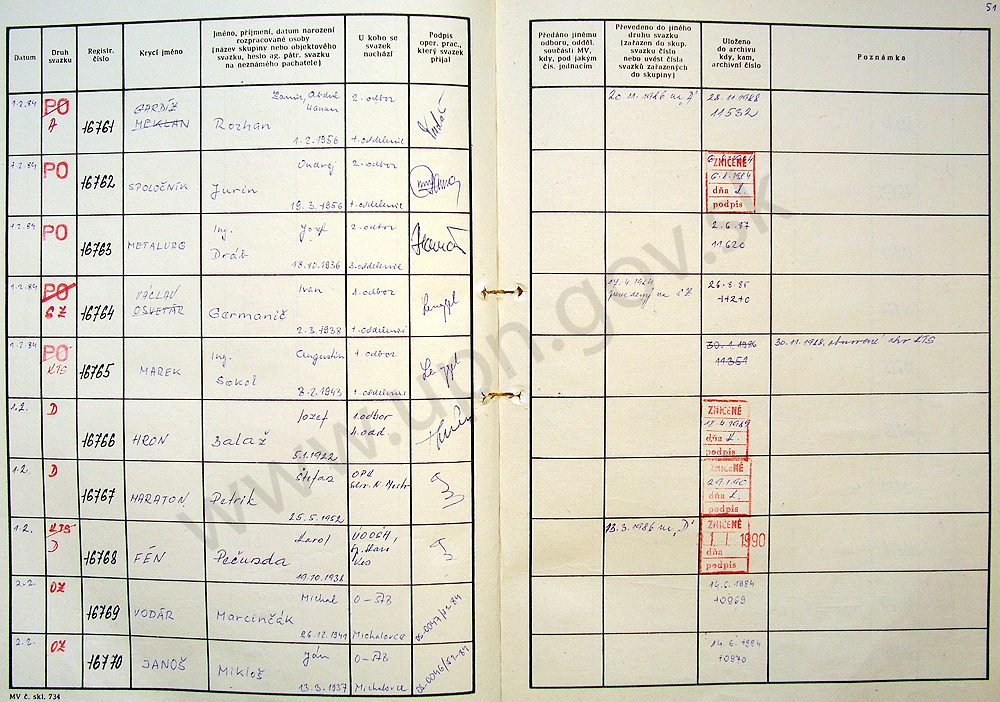 51
Datum
Druh svazku
Registr. číslo
Krycí jméno
Jméno, příjmení, datum narození rozpracované osoby (název skupiny nebo objektového svazku, heslo ag. pátr. svazku na neznámého pachatele)
U koho se svazek nachází
Podpis oper. prac., který svazek přijal
Předáno jinému odboru, odděl. součásti MV, kdy, pod jakým čís. jednacím
Převedeno do jiného druhu svazku (zařazen do skup. svazku číslo nebo uvést čísla svazků zařazených do skupiny)
Uloženo do archivu kdy, kam, archivní číslo
Poznámka
1.2.84 PO A 16761 GARDÍZ MEKLAN Abdul Hanan Rozhan 1.2.1956 2. odbor 1. oddelenie
20.11.1986 na „A" 28.11.1988 11532
1.2.84 PO 16762 SPOLOČNÍK Ondrej Jurin 19.3.1956 2. odbor 1. oddelenie
ZNIČENÉ 6.8.1984 dňa podpis
1.2.84 PO 16763 METALURG Ing. Jozef Dráb 18.10.1936 2. odbor 3. oddelenie
2.6.87 11620
1.2.84 PO SZ 16764 VÁCLAV OSVETÁR Ivan Germanič 2.3.1938 2. odbor 1. oddelenie
17.4.1984 na SZ 26.3.86 11270
1.2.84 PO KTS 16765 MAREK Ing. Augustín Sokol 3.2.1943 1. odbor 1. oddelenie
30.1.1986 11351 30.11.1988 KTS
1.2. D 16766 HRON Jozef Balaž 5.1.1922 1. odbor 4. odd.
ZNIČENÉ 17.4.1989 dňa podpis
1.2. D 16767 MARATON Štefan Petrik 25.5.1952
ZNIČENÉ 29.1.90 dňa podpis
1.2. KTS D 16768 FÉN Karol Pečusda 19.10.1938
13.3.1986 na „D" ZNIČENÉ 1 1 1990 dňa podpis
2.2. OZ 16769 VODÁR Michal Marcinčák 26.12.1941 O-ŠtB Michalovce
14.6.1984 10969
2.2. OZ 16770 JANOŠ Ján Mikloš 13.3.1937 O-ŠtB Michalovce
14.6.1984 10970
MV č. skl. 734
www.upn.gov.sk